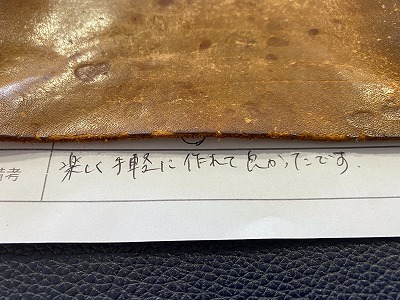 備考
楽しく手軽に作れて良かったです.